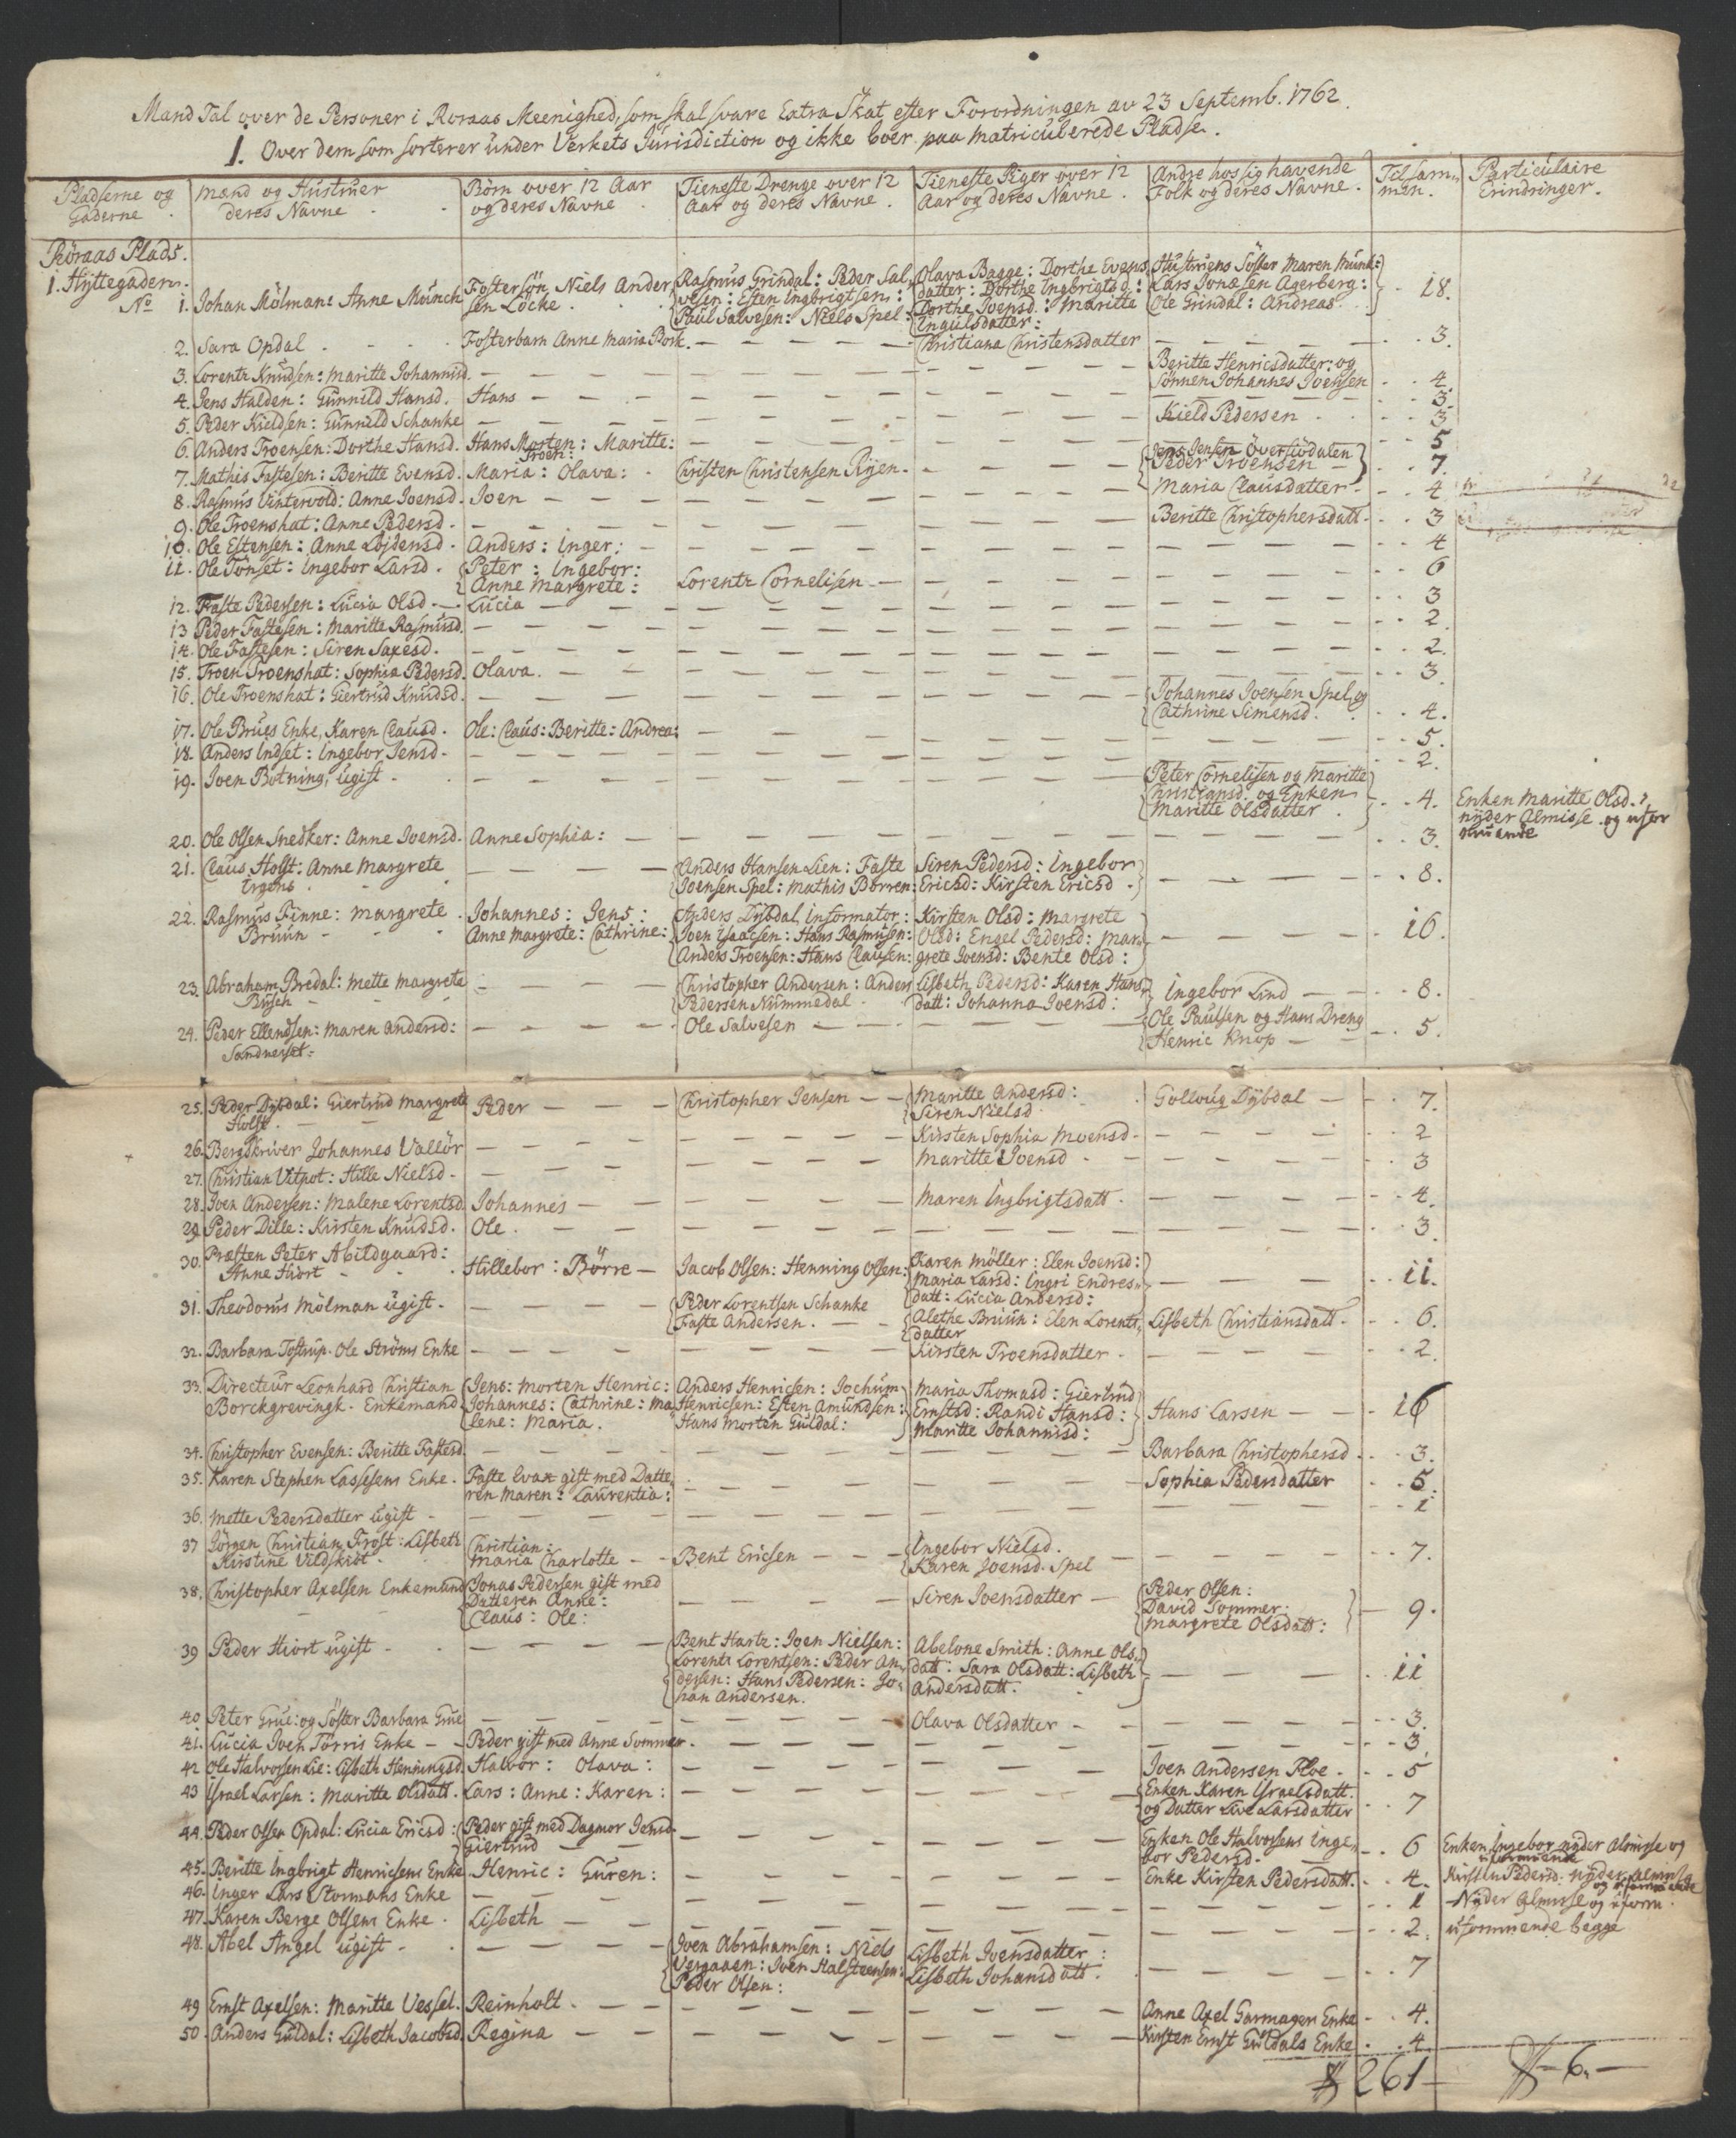 Mand Tal over de Personer i Roraas Meenighed, som skal svare Extra Skat efter Forordningen av 23 Septemb. 1762.
1. Over dem som sorterer under Verkets Jurisdiction og ikke boer paa matriculerede Pladse.
Pladserne og Gaderne. Mænd og Hustruer deres Navne Børn over 12 Aar og deres Navne Tieneste Drenge over 12 Aar og deres Navne. Tieneste Piger over 12 Aar og deres Navne. Andre hos sig havende Folk og deres Navne. Tilsammen. Particulaire Erindringer.
Röraas Plads.
1. Hyttegaden.
No 1. Johan Mölman: Anne Münch Fostersön Niels Andersen Löcke. Rasmus Grindal: Peder Salvesen: Esten Ingbrigtsen: Paul Salvesen: Niels Spel: Olava Bagge: Dorthe Evensdatter: Dorthe Ingbrigtsd: Dorthe Joensd: Maritte Ingulsdatter: Hustruens Söster Maren Münk: Lars Jonæsen Agerberg: Ole Grindal: Andreas 18.
2. Sara Opdal Fosterbarn Anne Maria Bork. Christiana Christensdatter 3.
3. Lorentz Knudsen: Maritte Johannisd. Beritte Henricsdatter: og Sønnen Johannes Joensen 4.
4. Jens Halden: Gunnild Hansd. Hans 3.
5. Peder Kieldsen: Gunnild Schanke Kield Pedersen 3
6. Anders Troensen: Dorthe Hansd. Hans Morten: Maritte: Troen: 5
7. Mathis Fastesen: Beritte Evensd. Maria: Olava: Christen Christensen Ryen. Jens Jensen Överliödalen Peder Troensen 7.
8. Rasmus Vintervold: Anne Joensd. Joen Maria Clausdatter 4
9. Ole Troenshat: Anne Pedersd. Beritte Christophersdatt. 3
10. Ole Estensen: Anne Lojdensd. Anders: Inger: 4
11. Ole Tönset: Ingebor Larsd. Peter: Ingebor: Anne Margrete: Lorentz Cornelisen 6
12. Faste Pedersen: Lucia Olsd Lucia 3
13 Peder Fastesen: Maritte Rasmusd. 2.
14. Ole Fastesen: Siren Saxesd. 2.
15. Troen Troenshat: Sophia Pedersd. Olava. 3.
16. Ole Troenshat: Giertrud Knudsd. Johannes Joensen Spel og Cathrine Simensd. 4.
17. Ole Brües Enke, Karen Clausd. Ole: Claus: Beritte: Andrea: 5.
18. Anders Indset: Ingebor Jensd. 2.
19. Joen Botning, ugift. Peter Cornelisen og Maritte Christiansd. og Enken Maritte Olsdatter. 4. Enken Maritte Olsd. nyder Almisse og uformuende
20. Ole Olsen Snedker: Anne Joensd. Anne Sophia: 3.
21. Claus Holst: Anne Margrete Irgens Anders Hansen Lien: Faste Joensen Spel: Mathis Borren: Siren Pedersd: Ingebor Ericsd: Kirsten Ericsd. 8.
22. Rasmus Finne: Margrete Bruun Johannes: Jens: Anne Margrete: Cathrine: Anders Dybdal Informator: Joen Isaacsen: Hans Rasmusen: Anders Troensen: Hans Clausen: Kirsten Olsd: Margrete Olsd: Engel Pedersd: Margrete Joensd: Bente Olsd: 16.
23. Abraham Bredal: Mette Margrete Busch Christopher Andersen: Anders Pedersen Nummedal Lisbeth Pedersd: Karen Hansdatt: Johanna Joensd: Ingebor Lind 8.
24. Peder Ellensen: Maren Andersd: Sandnerset: Ole Salvesen Ole Paulsen og Hans Dreng Henric Knop 5.
25. Peder Dybdal: Giertrud Margrete Holst. Peder Christopher Jensen Maritte Andersd: Siren Nielsd Gollaug Dybdal 7.
26. Bergskriver Johannes Vallör Kirsten Sophia Moensd. 2
27. Christian Vitpot: Hille Nielsd. Maritte Joensd 3
28. Joen Andersen: Malene Lorentsd. Johannes Maren Ingbrigtsdatt. 4.
29. Peder Dille: Kirsten Knudsd. Ole. 3.
30. Præsten Peter Abildgaard: Anne Hiort Hillebor: Börre Jacob Olsen: Henning Olsen: Karen Möller: Elen Joensd: Maria Larsd: Ingri Endresdatt: Lucia Andersd: 11.
31. Theodorus Mölman ugift. Peder Lorentsen Schanke Faste Andersen. Alethe Bruun: Elen Lorentsdatter Lisbeth Christiansdatt. 6.
32. Barbara Tostrup. Ole Ströms Enke Kirsten Troensdatter. 2.
33. Directeur Leonhard Christian Borckgrevingk. Enkemand Jens: Morten Henric: Johannes: Cathrine: Malene: Maria. Anders Henricsen: Jochum Henricsen: Esten Amundsen: Hans Morten Guldal: Maria Thomasd: Giertrud Ernstsd: Randi Hansd: Maritte Johannisd: Hans Larsen 16
34. Christopher Evensen: Beritte Fastesd. Barbara Christophersd. 3.
35. Karen Stephen Lassesens Enke. Faste Evax gift med Datteren Maren: Laurentia: Sophia Pedersdatter 5.
36. Mette Pedersdatter ugift 1
37 Jörgen Christian Frost: Lisbeth Kirstine Vildskiöt. Christian: Maria Charlotte Bent Ericsen Ingebor Nielsd. Karen Joensd. Spel 7.
38. Christopher Axelsen Enkemand Jonas Pedersen gift med Datteren Anne: Claus: Ole: Siren Joensdatter Peder Olsen: David Sommer: Margrete Olsdatt: 9.
39 Peder Hiort ugift Bent Hartz: Joen Nielsen: Lorentz Lorentsen: Peder Andersen: Hans Pedersen: Johan Andersen. Abelone Smith: Anne Olsdatt: Sara Olsdatt: Lisbeth Andersdatt. 11
40. Peter Grue: og Söster Barbara Grue Olava Olsdatter 3.
41. Lucia Joen Törris Enke Peder gift med Anne Sommer. 3.
42 Ole Halvorsen Lie: Lisbeth Henningsd. Halvor: Olava: Joen Andersen Floe 5
43 Israel Larsen: Maritte Olsdatt. Lars: Anne: Karen: Enken Karen Israelsdatt. og Datter Live Larsdatter 7
44. Peder Olsen Opdal: Lucia Ericsd: Peder gift med Dagmor Jensd. Giertrud Enken Ole Halvorsens Ingebor Pedersd. 6 Enken Ingebor nyder Almisse og uformuende
45. Beritte Ingbrigt Henricsens Enke Henric: Guren: Enke Kirsten Pedersdatt. 4. Kirsten Pedersd. nyder Almisse og uformuende
46. Inger Lars Stormohs Enke 1 Nyder Almisse og uform.
47. Karen Berge Olsens Enke. Lisbeth 2. uformuende begge
48. Abel Angel ugift Joen Abrahamsen: Niels Vergaaen: Joen Halsteensen: Peder Olsen: Lisbeth Joensdatter: Lisbeth Johansdatt. 7
49 Ernst Axelsen: Maritte Vessel. Reinholt. Anne Axel Garmagers Enke 4.
50. Anders Guldal: Lisbeth Jacobsd. Regina Kirsten Ernst Guldals Enke 4.
261 6.